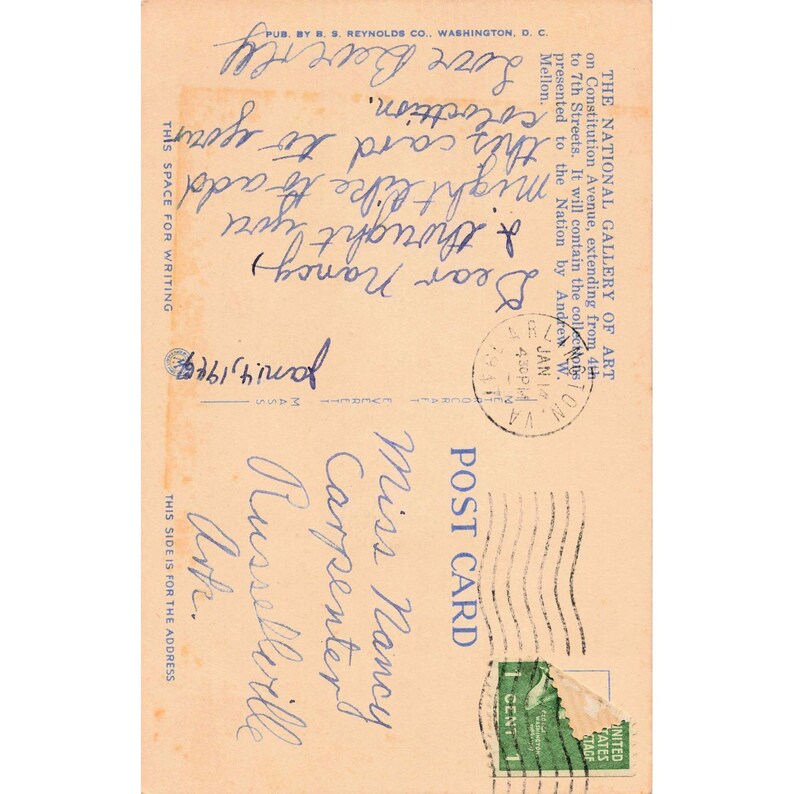 THE NATIONAL GALLERY OF ART
on Constitution Avenue, extending from 4th
to 7th Streets. It will contain the collections
presented to the Nation by Andrew W.
Mellon.
PUB. BY B. S. REYNOLDS CO., WASHINGTON, D. C.
Dear Nancy,
I thought you
might like to add
this card to you
coloction.
Love Beverly
THIS SPACE FOR WRITING
Jan. 14, 1947
METROCRAFT EVERETT MASS
POST CARD
Miss Nancy
Carpenter
Russellville
Ark.
THIS SIDE IS FOR THE ADDRESS
ARLINGTON, VA.
JAN 14
430 PM
1947
UNITED
TATES
TAGE
WASHINGTON
1 CENT 1